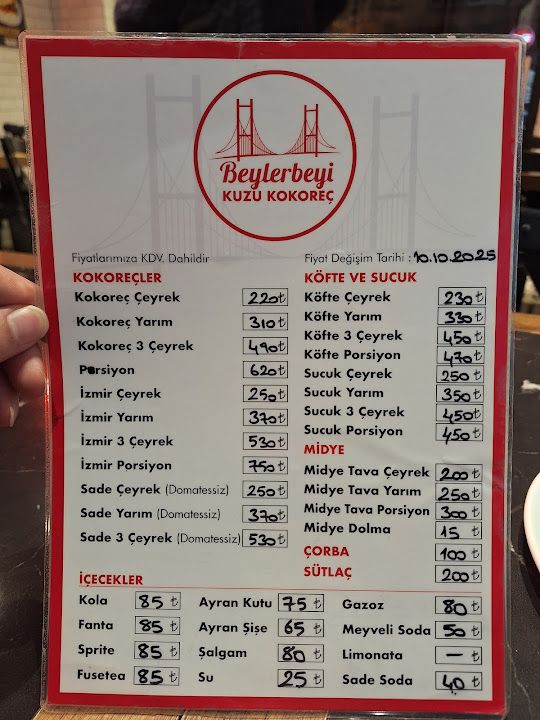 Beylerbeyi
KUZU KOKOREÇ
Fiyatlarımıza KDV. Dahildir
Fiyat Değişim Tarihi : 10.10.2025
KOKOREÇLER
Kokoreç Çeyrek 220₺
Kokoreç Yarım 310₺
Kokoreç 3 Çeyrek 490₺
Porsiyon 620₺
İzmir Çeyrek 250₺
İzmir Yarım 370₺
İzmir 3 Çeyrek 530₺
İzmir Porsiyon 750₺
Sade Çeyrek (Domatessiz) 250₺
Sade Yarım (Domatessiz) 370₺
Sade 3 Çeyrek (Domatessiz) 530₺
KÖFTE VE SUCUK
Köfte Çeyrek 230₺
Köfte Yarım 330₺
Köfte 3 Çeyrek 450₺
Köfte Porsiyon 470₺
Sucuk Çeyrek 250₺
Sucuk Yarım 350₺
Sucuk 3 Çeyrek 450₺
Sucuk Porsiyon 450₺
MİDYE
Midye Tava Çeyrek 200₺
Midye Tava Yarım 250₺
Midye Tava Porsiyon 300₺
Midye Dolma 15₺
ÇORBA 100₺
SÜTLAÇ 200₺
İÇECEKLER
Kola 85₺
Fanta 85₺
Sprite 85₺
Fusetea 85₺
Ayran Kutu 75₺
Ayran Şişe 65₺
Şalgam 80₺
Su 25₺
Gazoz 80₺
Meyveli Soda 50₺
Limonata —₺
Sade Soda 40₺